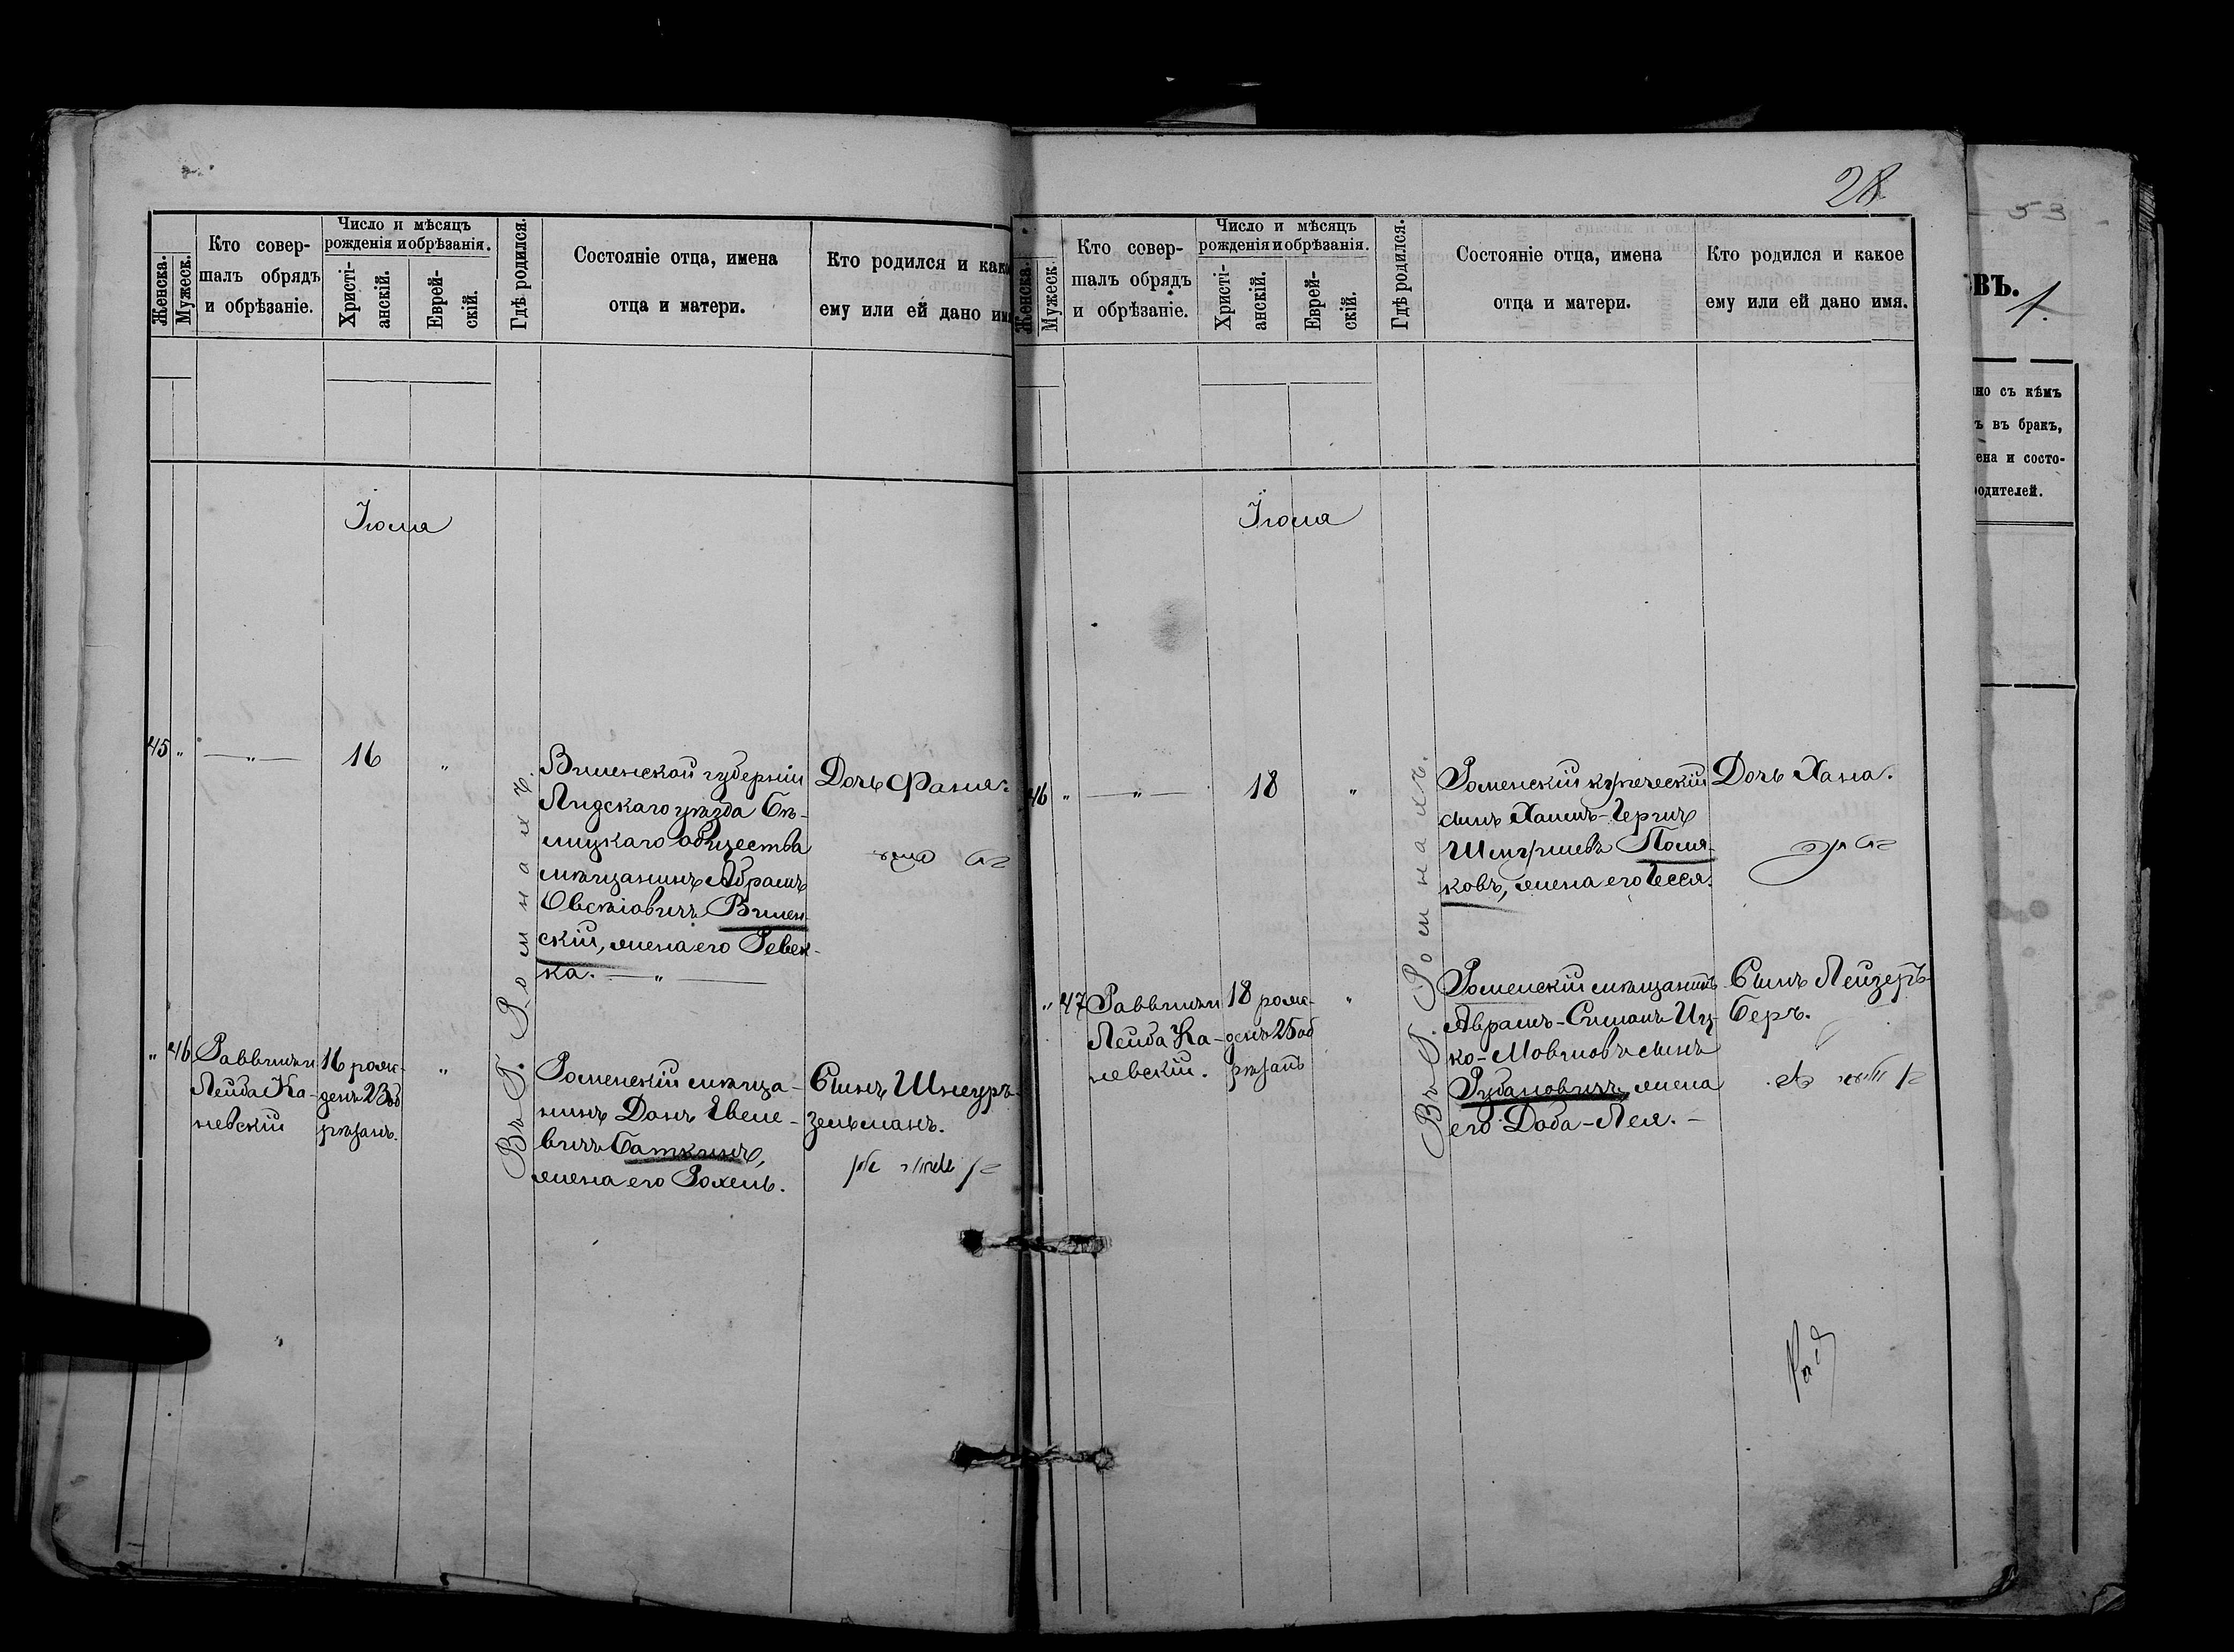 Женска.
Мужеск.
Кто совер-
шалъ обрядъ
и обрѣзаніе.
Число и мѣсяцъ
рожденія и обрѣзанія.
Христі-
анскій.
Еврей-
скій.
Гдѣ родился.
Состояніе отца, имена
отца и матери.
Кто родился и како
ему или ей дано имя
Іюля
45 " — " — 16 "
Виленской губерніи
Лидскаго уѣзда Бѣ-
лицкаго общества
мѣщанинъ Абрамъ
Овсѣіовичъ Вилен-
скій, жена его Ревек-
ка. — " —
Дочь Фаня.
בת
" 46
Раввинъ и
Лейба Ка-
невскій
16 рож-
денъ 23 об
рѣзанъ.
"
Въ Г. Ромнахъ.
Роменскій мѣща-
нинъ Донъ Евеле-
вичъ Баткинъ,
жена его Рохель.
Сынъ Шнеуръ-
Зельманъ.
בן
28
Женска.
Мужеск.
Кто совер-
шалъ обрядъ
и обрѣзаніе.
Число и мѣсяцъ
рожденія и обрѣзанія.
Христі-
анскій.
Еврей-
скій.
Гдѣ родился.
Состояніе отца, имена
отца и матери.
Кто родился и какое
ему или ей дано имя.
Іюля
46 " — " — 18 "
Роменскій купеческій
сынъ Хаимъ-Герцъ
Поля-
ковъ, жена его Гесся.
Дочь Хана.
בת
" 47
Раввинъ и
Лейба Ка-
невскій.
18 рож-
денъ 25 об
рѣзанъ
"
Въ Г. Ромнахъ.
Роменскій мѣщанинъ
Абрамъ-Симонъ Иц-
ко-Мовшовъ сынъ
Рубановичъ, жена
его Доба-Лея. —
Сынъ Лейзеръ-
Беръ.
בן
53
въ.
1.
но съ кѣмъ
ъ въ бракъ,
ена и состо-
одителей.